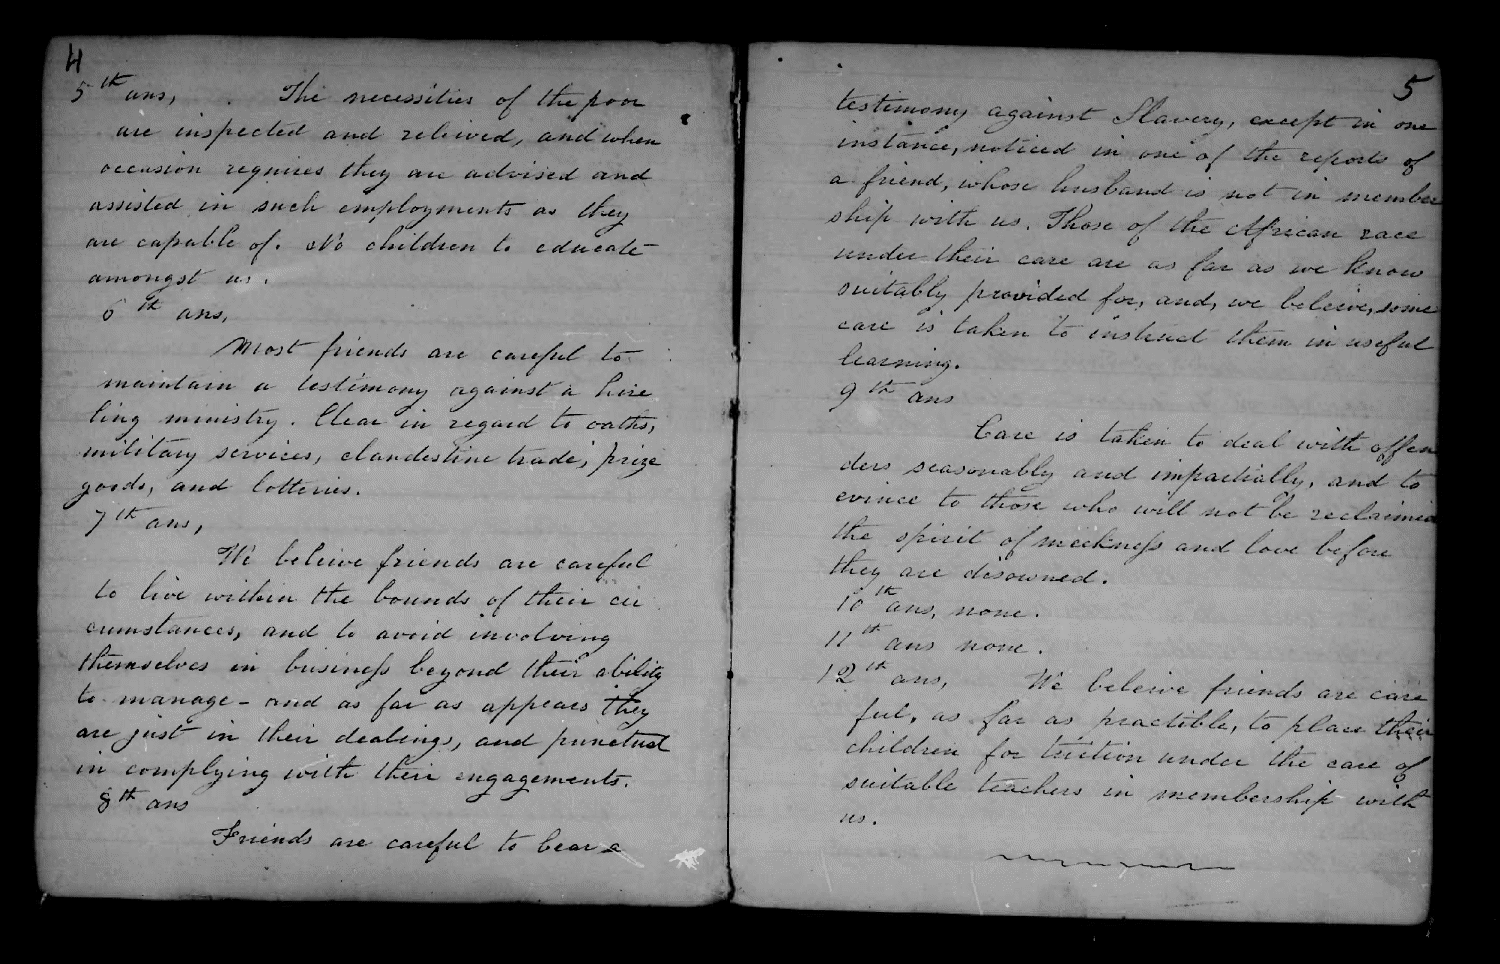 4
5th ans, The necessities of the poor
are inspected and releived, and when
occasion requires they are advised and
assisted in such employments as they
are capable of. No children to educate
amongst us.
6th ans,
Most friends are careful to
maintain a testimony against a hire
ling ministry. Clear in regard to oaths,
military services, clandestine trade, prize
goods, and lotteries.
7th ans,
We beleive friends are careful
to live within the bounds of their cir
cumstances, and to avoid involving
themselves in business beyond their ability
to manage - and as far as appears they
are just in their dealings, and punctual
in complying with their engagements.
8th ans
Friends are careful to bear a
5
testimony against Slavery, except in one
instance, noticed in one of the reports of
a friend, whose husband is not in member
ship with us. Those of the African race
under their care are as far as we know
suitably provided for, and, we beleive, some
care is taken to instruct them in useful
learning.
9th ans
Care is taken to deal with offen
ders seasonably and impartially, and to
evince to those who will not be reclaimed
the spirit of meekness and love before
they are disowned.
10th ans, none.
11th ans none.
12th ans, We beleive friends are care
ful, as far as practible, to place their
children for tuiction under the care of
suitable teachers in membership with
us.